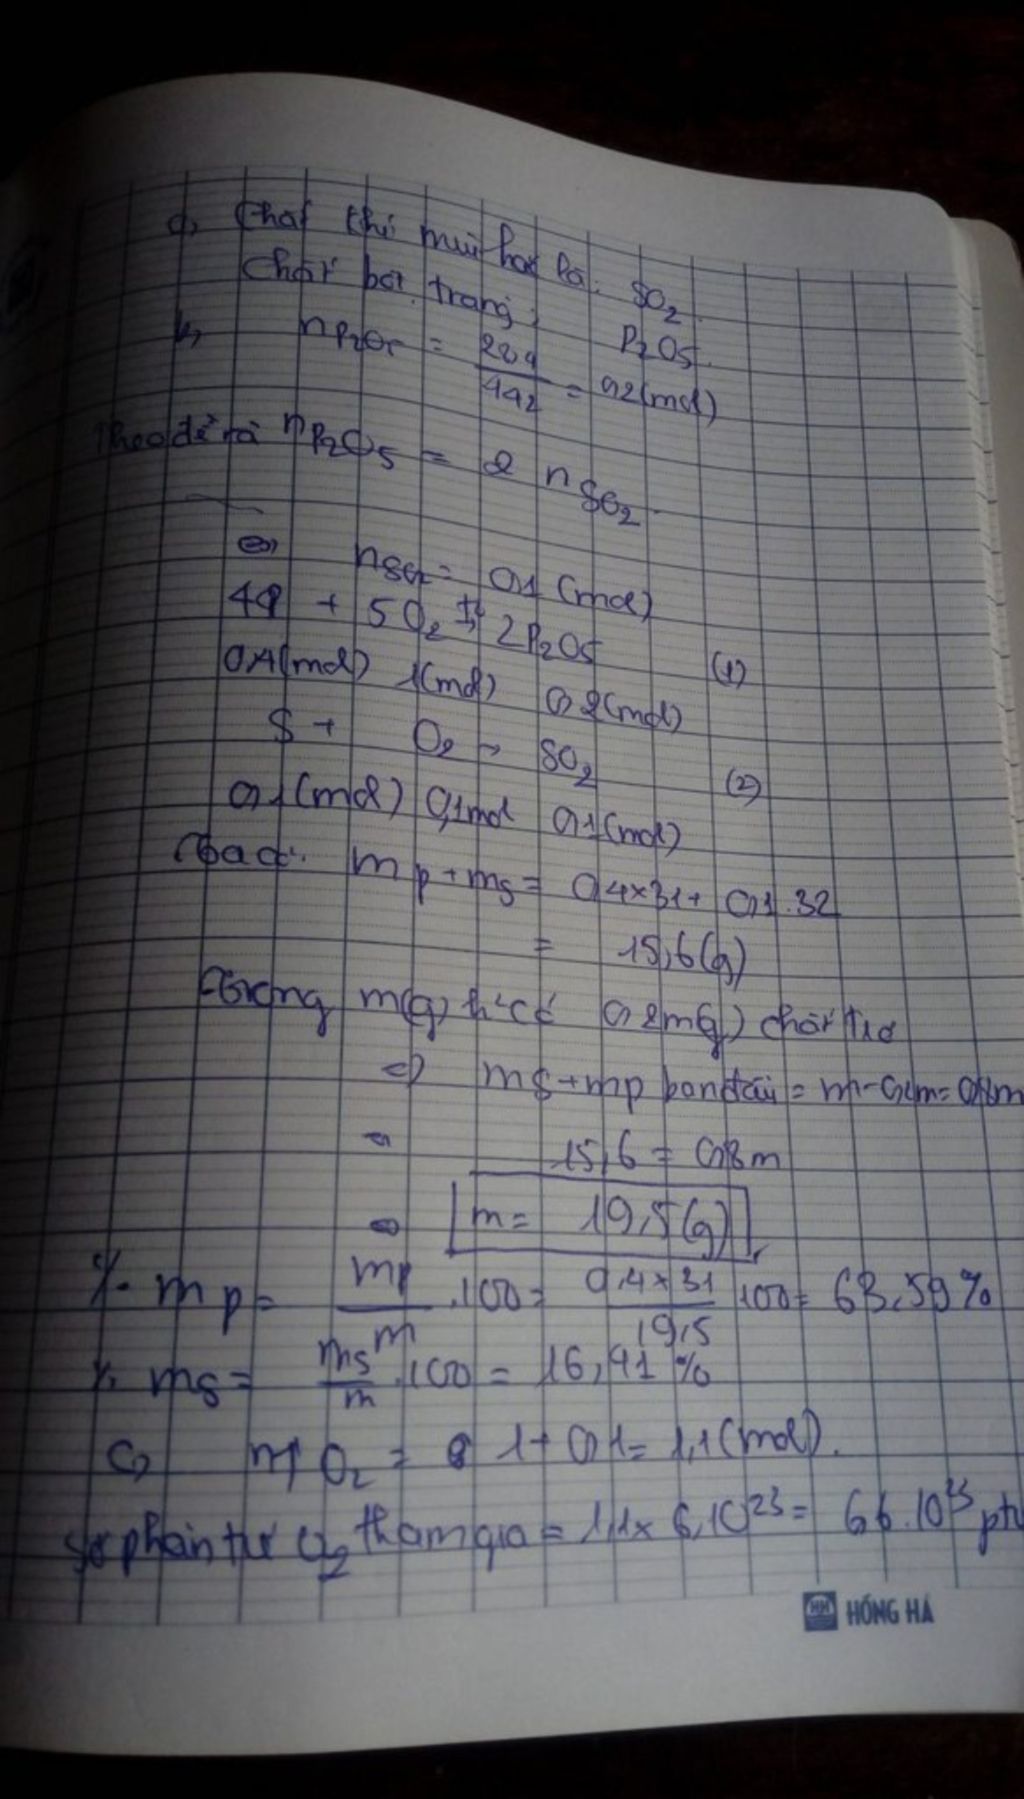 a, Chất khí mùi hắc là: SO2
Chất bột trắng: P2O5.
b, nP2O5 = 28,4/142 = 0,2(mol)
Theo đề ra nP2O5 = 2 nSO2
nSO2 = 0,1 (mol)
4P + 5O2 t° → 2P2O5 (1)
0,4(mol) 1(mol) 0,2(mol)
S + O2 → SO2 (2)
0,1(mol) 0,1mol 0,1(mol)
mp + ms = 0,4×31 + 0,1.32
= 15,6(g)
Trong m(g) h² có 0,2m(g) chất trơ
=> ms + mp ban đầu = m - 0,2m = 0,8m
15,6 = 0,8m
m = 19,5(g)
% mp = mp/m .100 = 0,4×31/19,5 .100 = 63,59%
% ms = ms/m .100 = 16,41%
c, n O2 = 1 + 0,1 = 1,1(mol).
Số phân tử O2 tham gia = 1,1 × 6.10^23 = 6,6.10^23 ptử
HH HỒNG HÀ